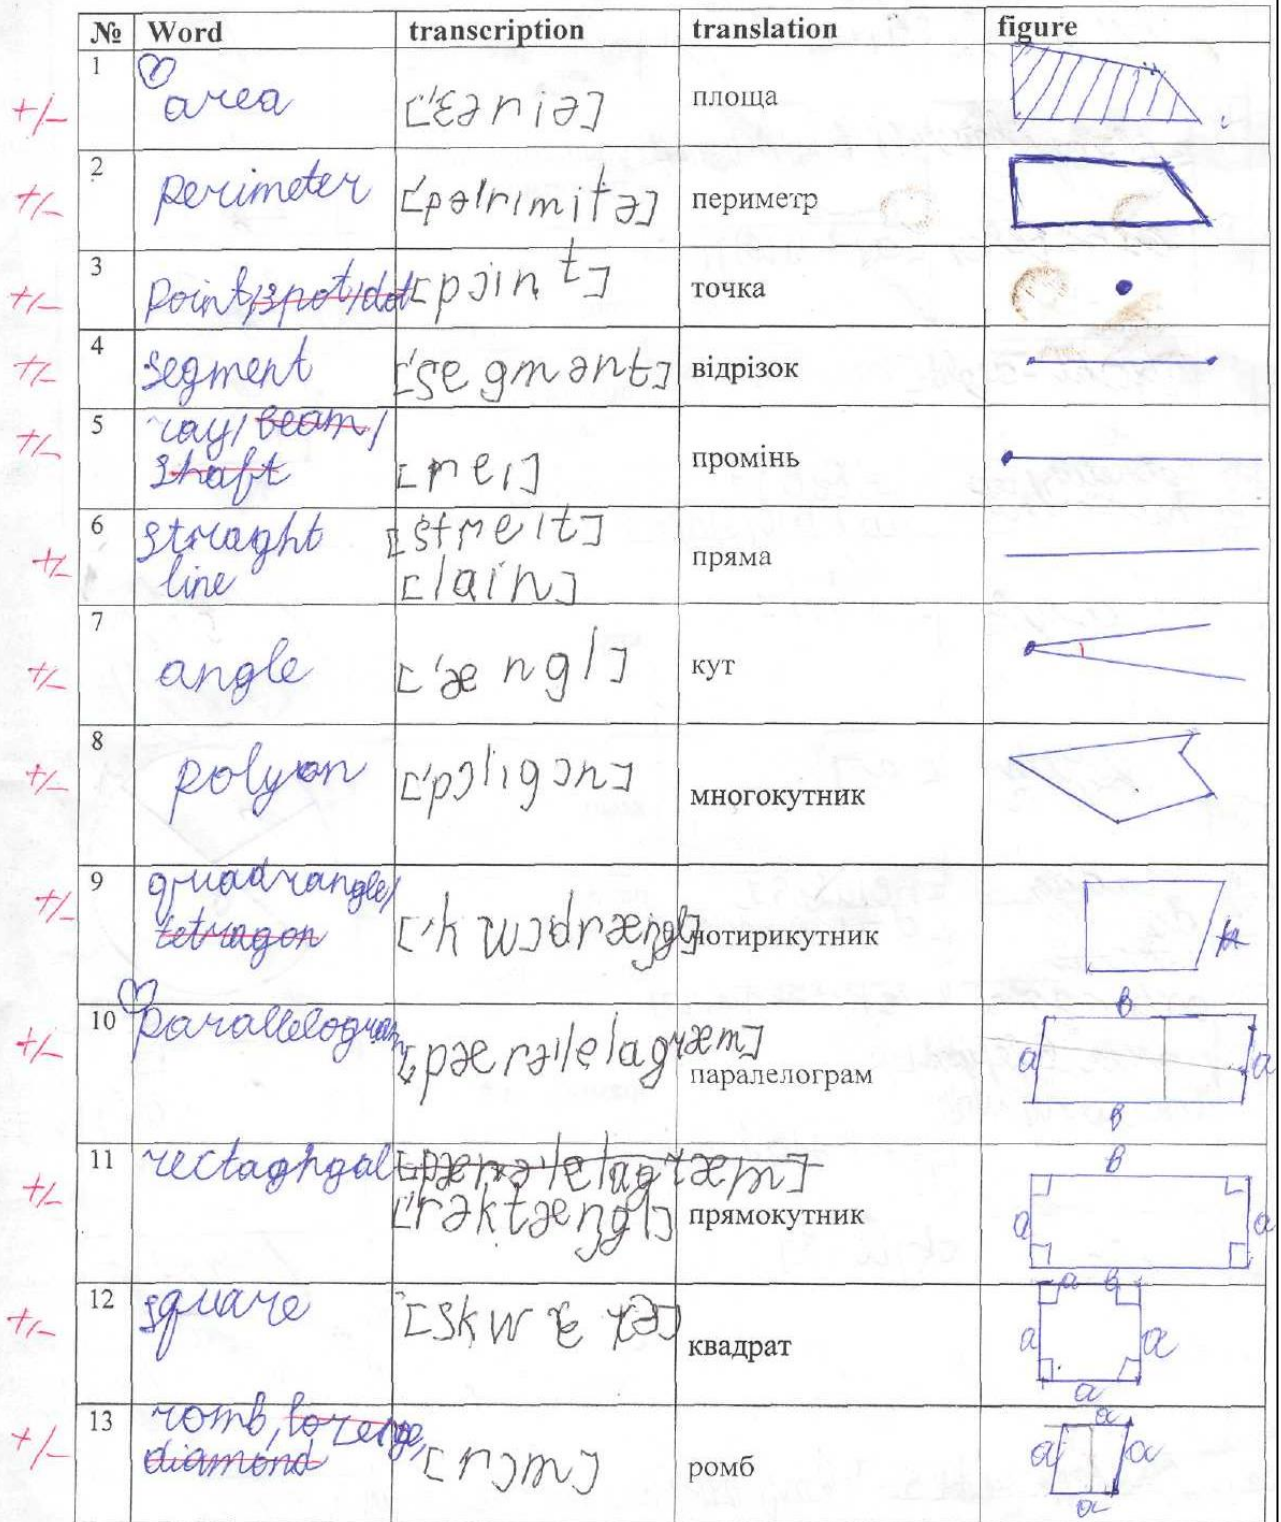 № Word transcription translation figure
1 area [ˈɛəriə] площа
+/-
2 perimeter [ˈpəˈrimitə] периметр
+/-
3 point/spot/dot [pɔint] точка
+/-
4 segment [ˈsegmənt] відрізок
+/-
5 ray/beam/
shaft [rei] промінь
+/-
6 straght [streit]
line [lain] пряма
+/-
7 angle [ˈængl] кут
+/-
8 polyon [ˈpɔligɔn] многокутник
+/-
9 quadrangle/
tetragon [ˈkwɔdræŋgl] чотирикутник
+/-
10 parallelogram [pærəˈlelagræm] паралелограм
+/-
в
a a
в
11 rectaghgal [pærəlelagræm]
[ˈrəktæŋgl] прямокутник
+/-
в
a a
a в
12 square [skwɛrə] квадрат
+/-
a a
a
13 romb, lozenge,
diamond [rɔm] ромб
+/-
a
a a
a